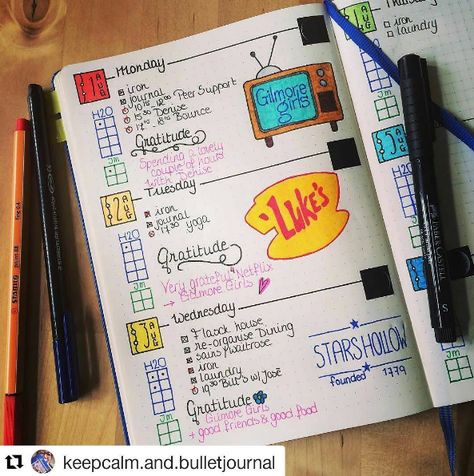 1 AUG
Monday
iron
journal
Peer Support
15.30 Denise
Bounce
H2O
Gratitude
Jm
Spending a lovely
couple of hours
with Denise
Gilmore
girls
2 AUG
Tuesday
iron
journal
17.30 yoga
H2O
Gratitude
Jm
Very grateful Netflix
→ Gilmore Girls
LUKE'S
3 AUG
Wednesday
house
re-organise Dining
sains/Waitrose
iron
laundry
19.30 w/ José
H2O
Gratitude
Jm
Gilmore Girls
+ good friends & good food
STARS HOLLOW
founded 1779
4 AUG
Thursday
iron
laundry
H2O
Jm
5
H2O
Jm
H2O
Jm
STABILO
FABER-CASTELL
S
keepcalm.and.bulletjournal